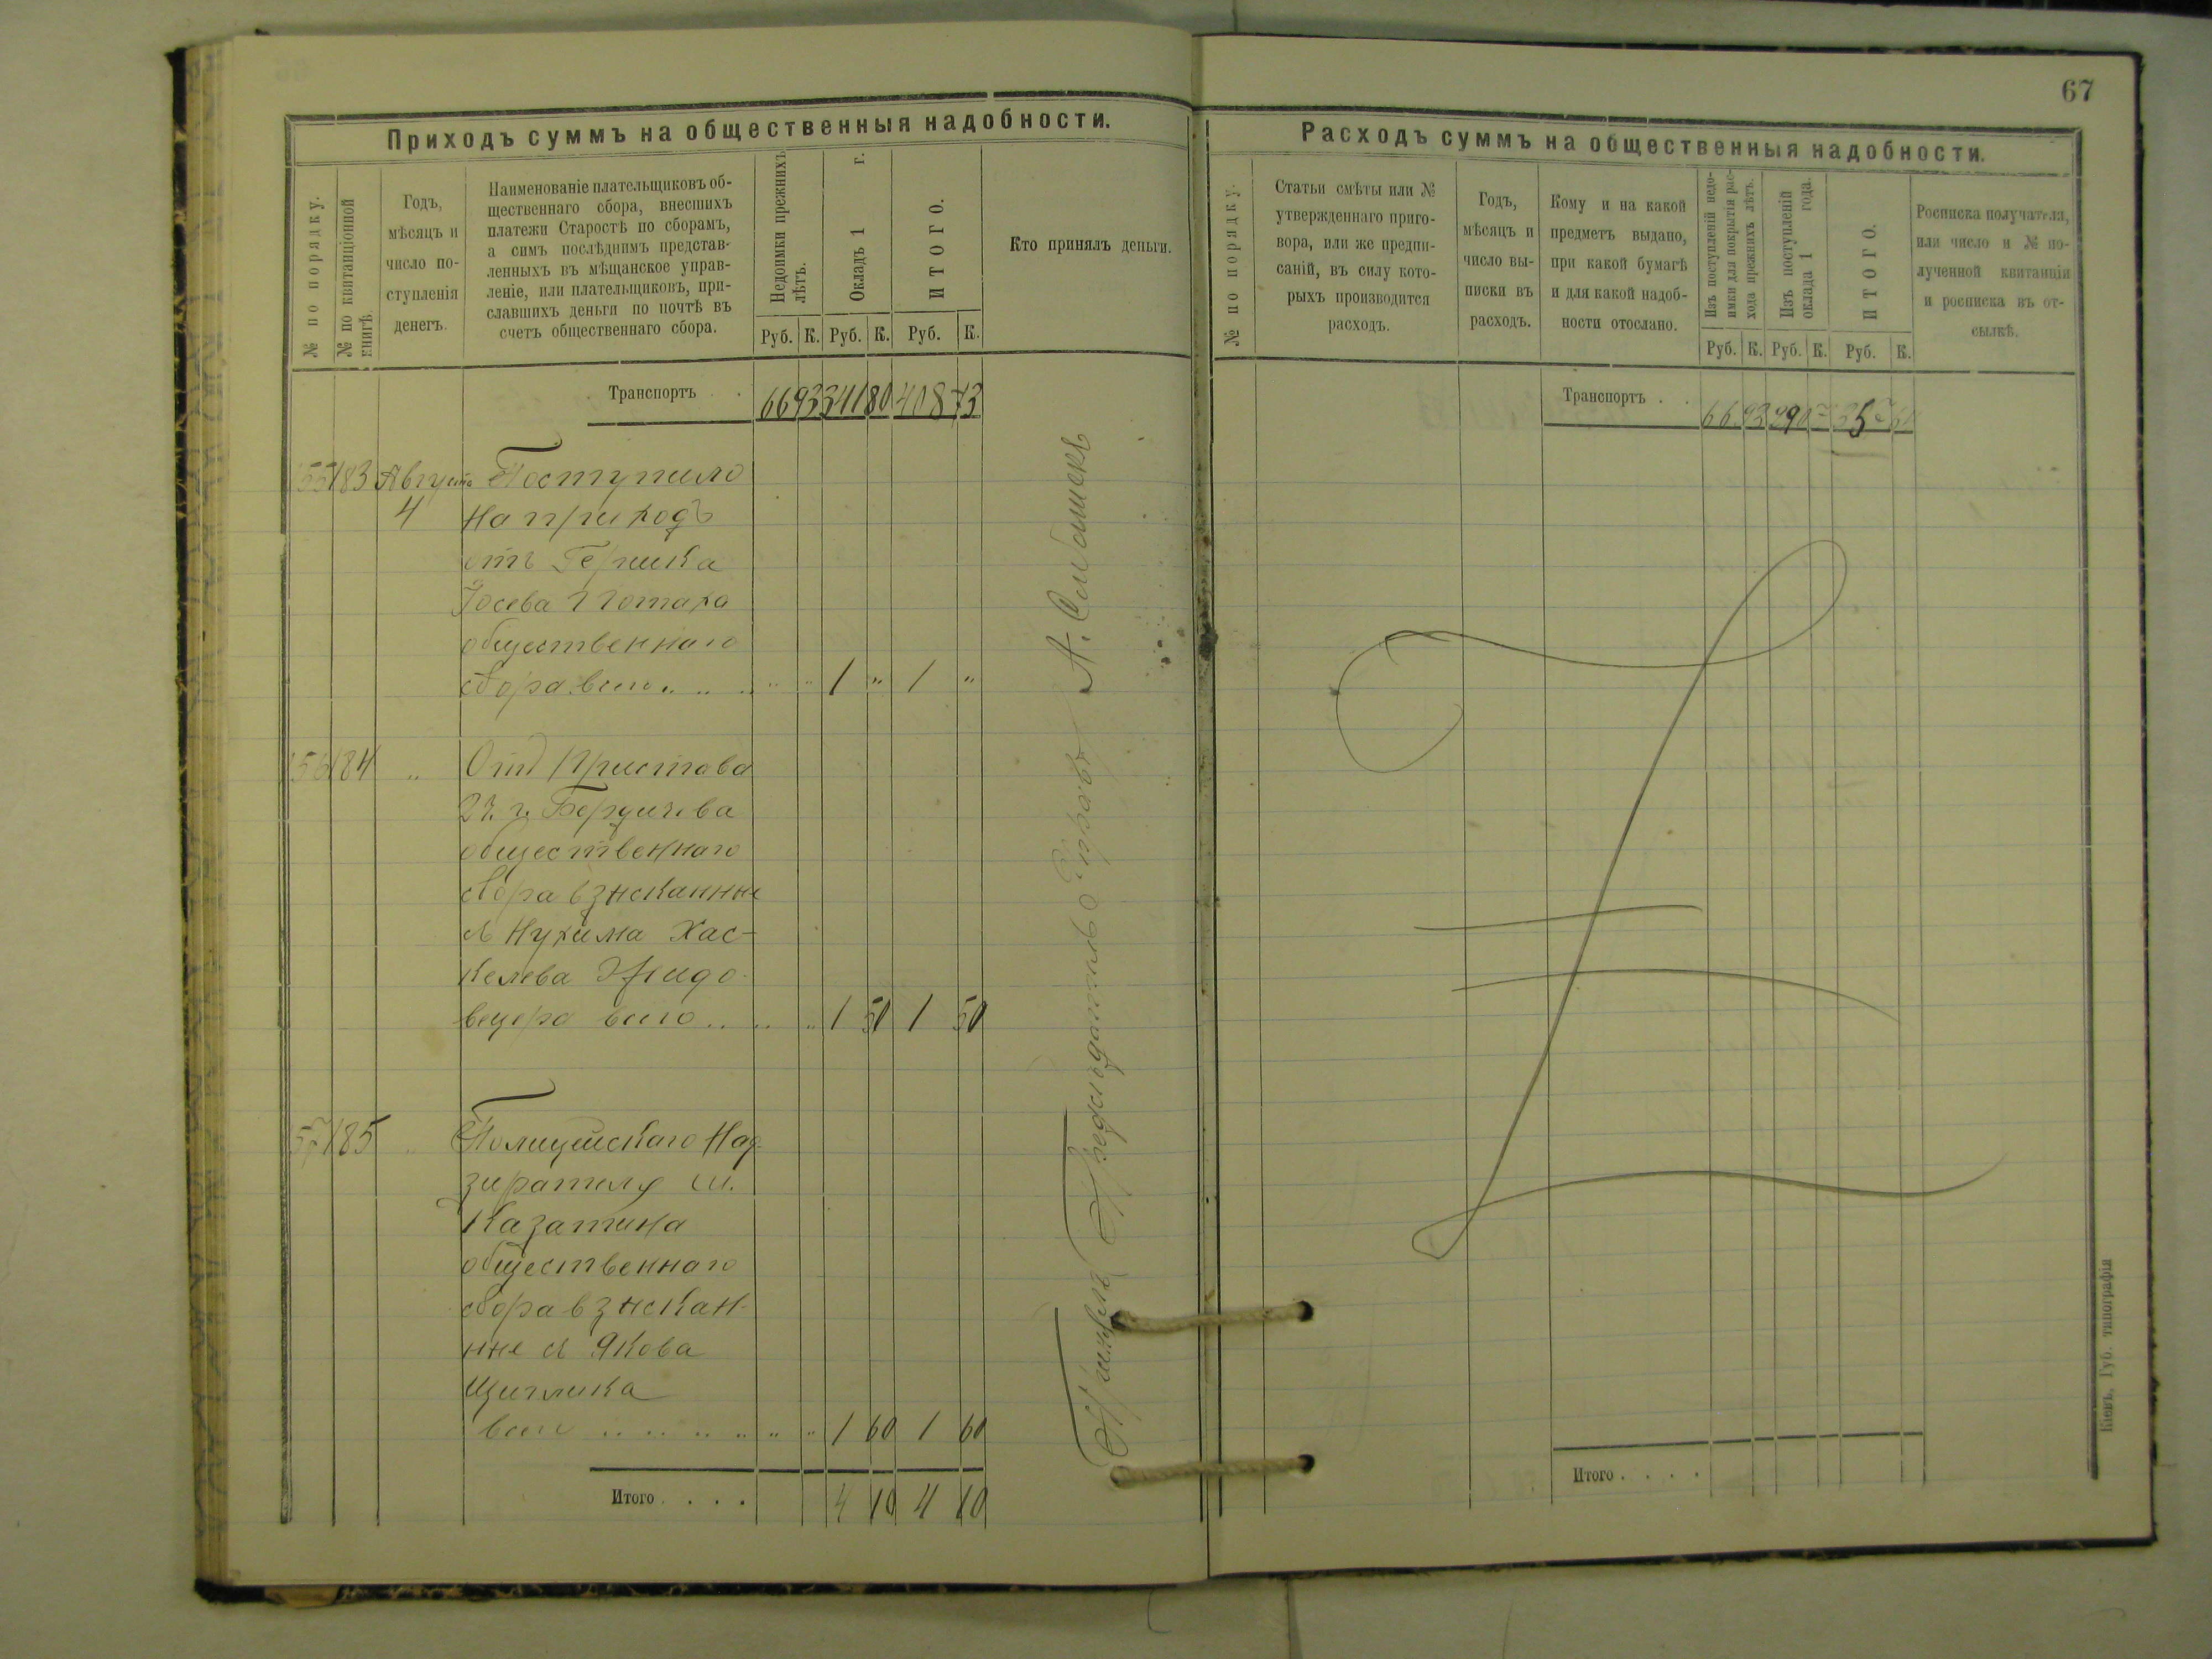 67
Приходъ суммъ на общественныя надобности.
№ по порядку.
№ по квитанціонной книгѣ.
Годъ,
мѣсяцъ и
число по-
ступленія
денегъ.
Наименованіе плательщиковъ об-
щественнаго сбора, внесшихъ
платежи Старостѣ по сборамъ,
а симъ послѣднимъ представ-
ленныхъ въ мѣщанское управ-
леніе, или плательщиковъ, при-
славшихъ деньги по почтѣ въ
счетъ общественнаго сбора.
Недоимки прежнихъ
лѣтъ.
Окладъ 1 г.
ИТОГО.
Кто принялъ деньги.
Руб. К. Руб. К. Руб. К.
Транспортъ . 66 93 341 80 408 73
155 183 Августа Поступило
4 на приходъ
отъ Гершка
Іосева Потаха
общественнаго
сбора всего .. .. .. .. 1 " 1 "
156 184 .. Отъ Пристава
2 ч. г. Бердичева
общественнаго
сбора взысканные
съ Нухима Хас-
келева Жидо-
вецера всего .. .. .. 1 50 1 50
157 185 .. Полицейскаго Над-
зирателя м.
Казатина
общественнаго
сбора взыскан-
ные съ Якова
Щиглика
всего .. .. .. .. .. .. 1 60 1 60
Итого . . . . 4 10 4 10
Принялъ Предсѣдатель Управы
Расходъ суммъ на общественныя надобности.
№ по порядку.
Статьи смѣты или №
утвержденнаго приго-
вора, или же предпи-
саній, въ силу кото-
рыхъ производится
расходъ.
Годъ,
мѣсяцъ и
число вы-
писки въ
расходъ.
Кому и на какой
предметъ выдано,
при какой бумагѣ
и для какой надоб-
ности отослано.
Изъ поступленій недо-
имки для покрытія рас-
хода прежнихъ лѣтъ.
Изъ поступленій
оклада 1 года.
ИТОГО.
Росписка получателя,
или число и № по-
лученной квитанціи
и росписка въ от-
сылкѣ.
Руб. К. Руб. К. Руб. К.
Транспортъ . . 66 93
Итого . . . .
Кіевъ, Губ. типографія